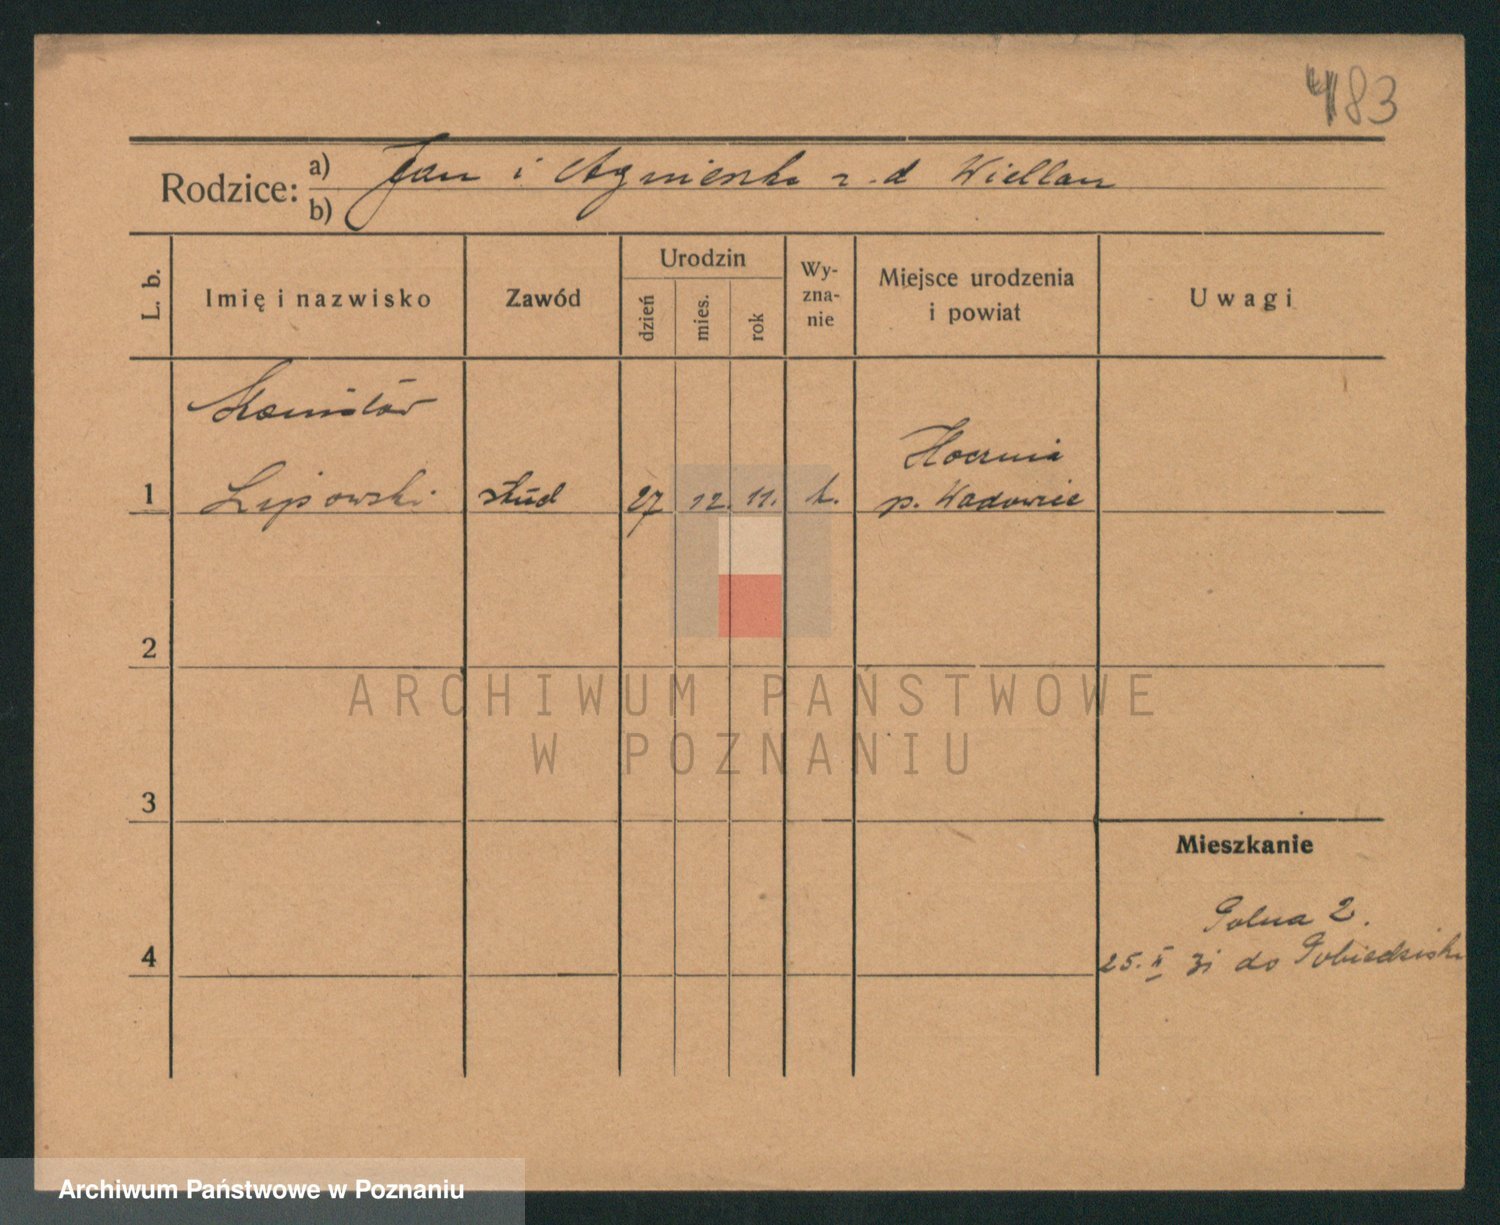 483
Rodzice: a) Jan i Agnieszka z d Wiellan
b)
L. b.
Imię i nazwisko
Zawód
Urodzin
dzień
mies.
rok
Wy-
zna-
nie
Miejsce urodzenia
i powiat
Uwagi
1
Lipowski
stud
27
12.
11.
k.
p. Wadowice
2
3
4
Mieszkanie
Polna 2.
25. II 31 do Pobiedzisk
ARCHIWUM PAŃSTWOWE
W POZNANIU
Archiwum Państwowe w Poznaniu